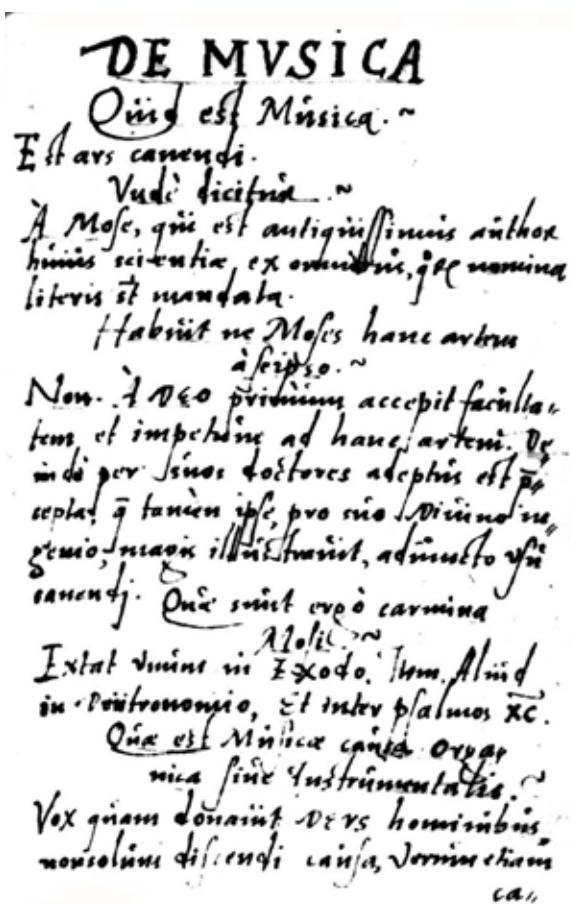 DE MVSICA
Quid est Musica.~
Est ars canendi.
Vndè dicitur.~
À Mose, qui est antiquissimus author
huius scientiæ, ex omnibus, qrũ nomina
literis st̃ mandata.
Habuit ne Moses hanc artem
à seipso.~
Non. À DEO primùm accepit faculta⸗
tem et impetum ad hanc artem. De
indè per suos doctores adeptus est p̄⸗
cepta, q̄ tamen ipse, pro suo Diuino in⸗
genio, magis illustrauit, adiuncto vsu
canendi.
Quæ sunt ergò carmina
Mosis.~
Extat vnum in Exodo, Item Aliud
in Deutronomio, Et inter psalmos XC.
Quæ est Musicæ causa Orga⸗
nica siue Instrumentalis.~
Vox quam donauit DEVS hominibus,
non solum discendi causa, verum etiam
ca⸗